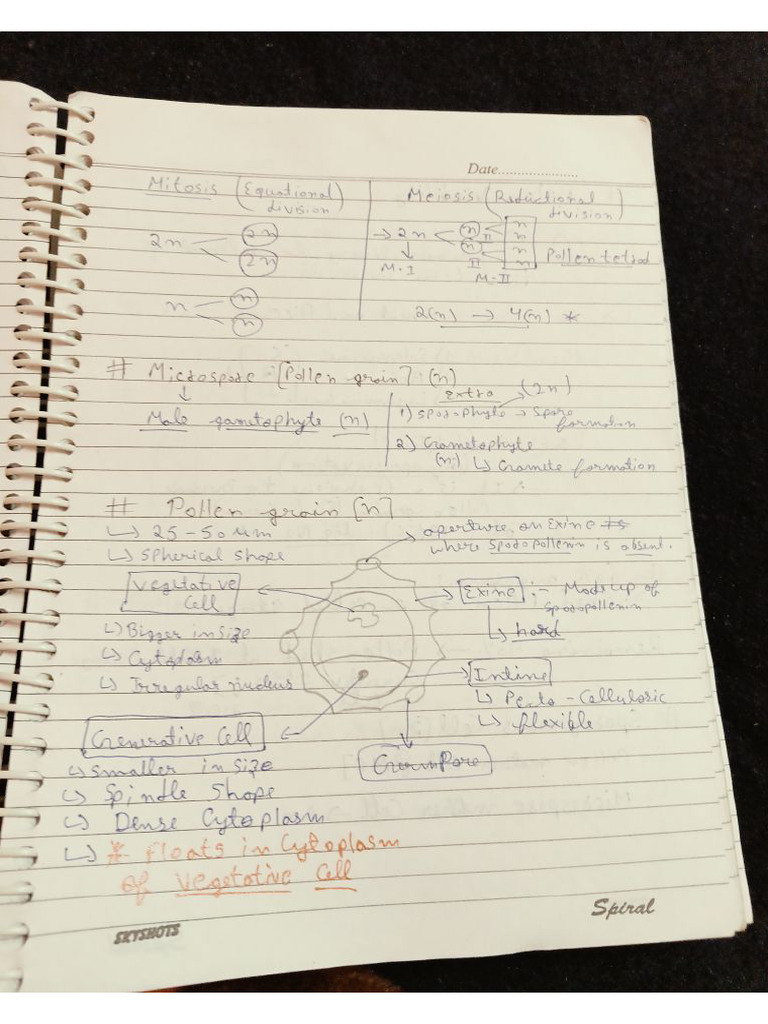 Date.....................
Mitosis (Equational division)
2n
2n
2n
n
n
n
Meiosis (Reductional division)
→ 2n
n
n
II
II
n
n
n
n
Pollen tetrad
M-I
M-II
2(n) → 4(n) *
# Microspore [Pollen grain] (n)
↓
Male gametophyte (n)
Extra
(2n)
1) Sporophyte → Spore formation
2) Gametophyte
(n)
↳ Gamete formation
# Pollen grain [n]
↳ 25-50 μm
↳ Spherical shape
aperture on Exine
where Sporopollenin is absent.
Vegetative Cell
↳ Bigger in size
↳ Cytoplasm
↳ Irregular nucleus
Exine :- Made up of Sporopollenin
↳ hard
Intine
↳ Pecto-Cellulosic
↳ flexible
Germ Pore
Generative Cell
↳ Smaller in size
↳ Spindle Shape
↳ Dense Cytoplasm
↳ * Floats in Cytoplasm
of Vegetative Cell
Spiral
SKYSHOTS